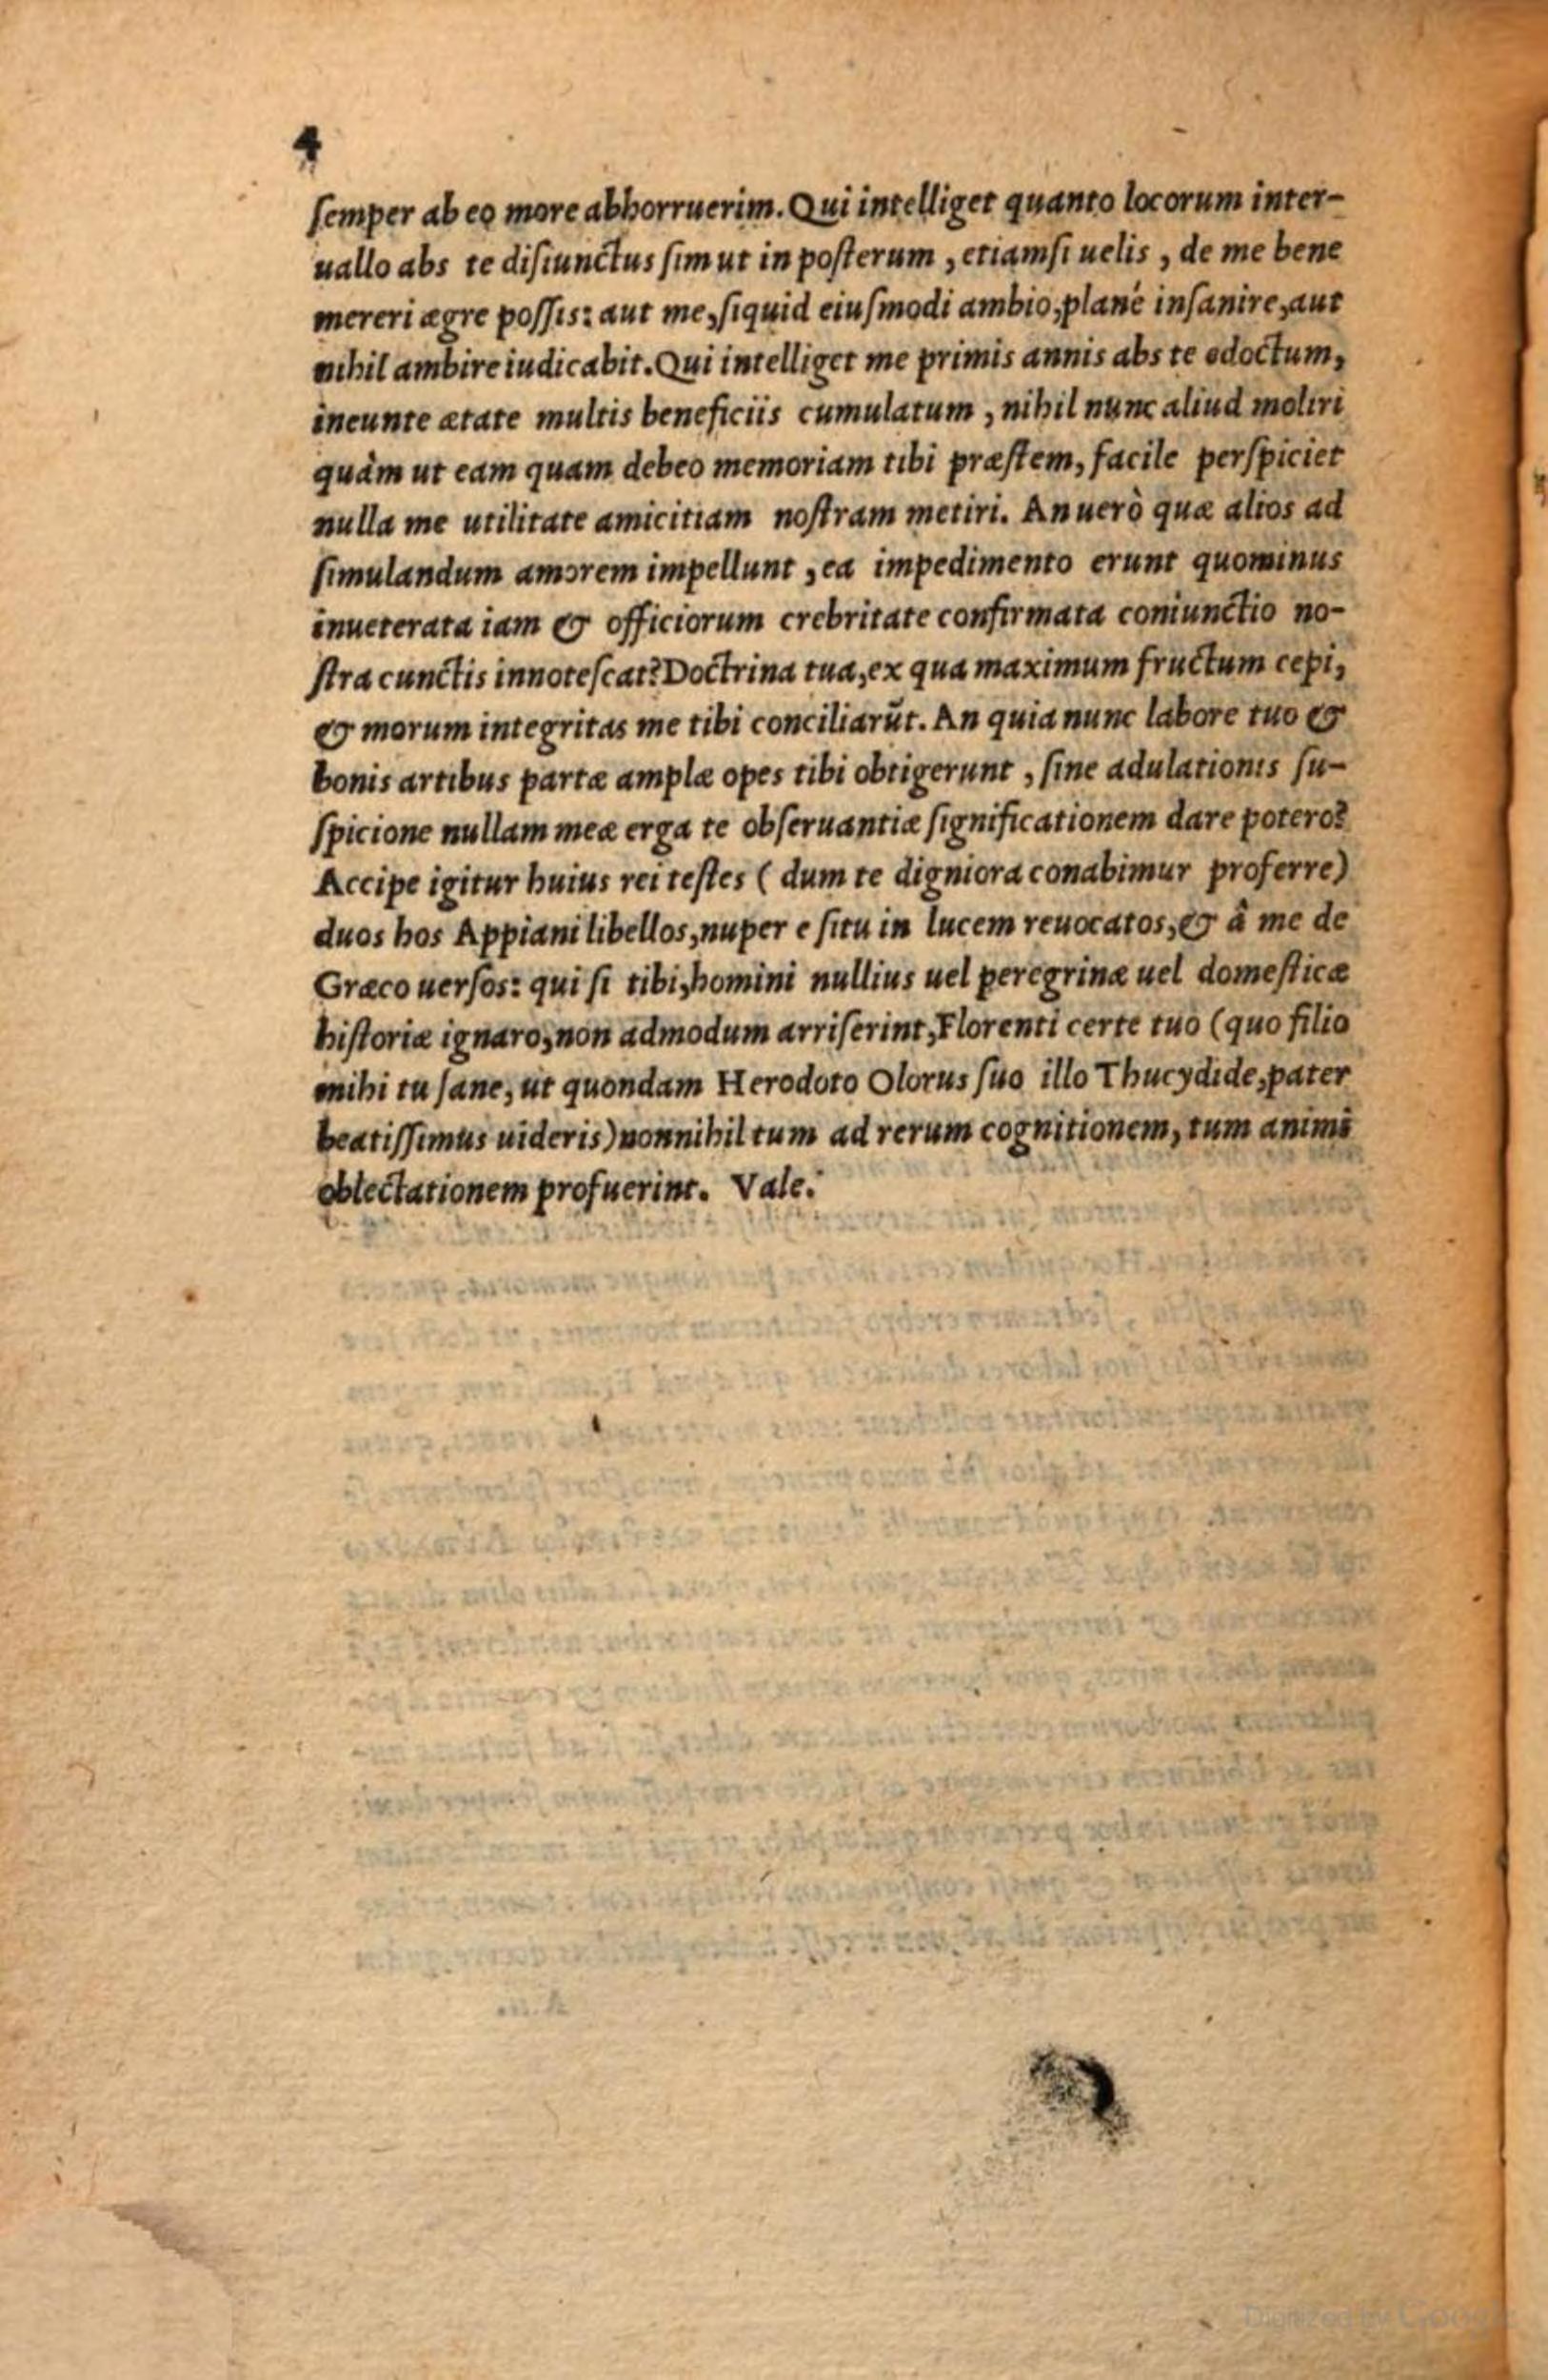 4
ſemper ab eo more abhorruerim. Qui intelliget quanto locorum inter-
uallo abs te diſiunctus ſim ut in poſterum, etiamſi uelis, de me bene
mereri ægre poſſis: aut me, ſiquid eiuſmodi ambio, plané inſanire, aut
nihil ambire iudicabit. Qui intelliget me primis annis abs te edoctum,
ineunte ætate multis beneficiis cumulatum, nihil nunc aliud moliri
quàm ut eam quam debeo memoriam tibi præſtem, facile perſpiciet
nulla me utilitate amicitiam noſtram metiri. An uerò quæ alios ad
ſimulandum amorem impellunt, ea impedimento erunt quominus
inueterata iam & officiorum crebritate confirmata coniunctio no-
ſtra cunctis innoteſcat? Doctrina tua, ex qua maximum fructum cepi,
& morum integritas me tibi conciliarūt. An quia nunc labore tuo &
bonis artibus partæ amplæ opes tibi obtigerunt, ſine adulationis ſu-
ſpicione nullam meæ erga te obſeruantiæ ſignificationem dare potero?
Accipe igitur huius rei teſtes ( dum te digniora conabimur proferre)
duos hos Appiani libellos, nuper e ſitu in lucem reuocatos, & â me de
Græco uerſos: qui ſi tibi, homini nullius uel peregrinæ uel domeſticæ
hiſtoriæ ignaro, non admodum arriſerint, Florenti certe tuo (quo filio
mihi tu ſane, ut quondam Herodoto Olorus ſuo illo Thucydide, pater
beatiſſimus uideris) nonnihil tum ad rerum cognitionem, tum animi
oblectationem profuerint. Vale.
Digitized by Google